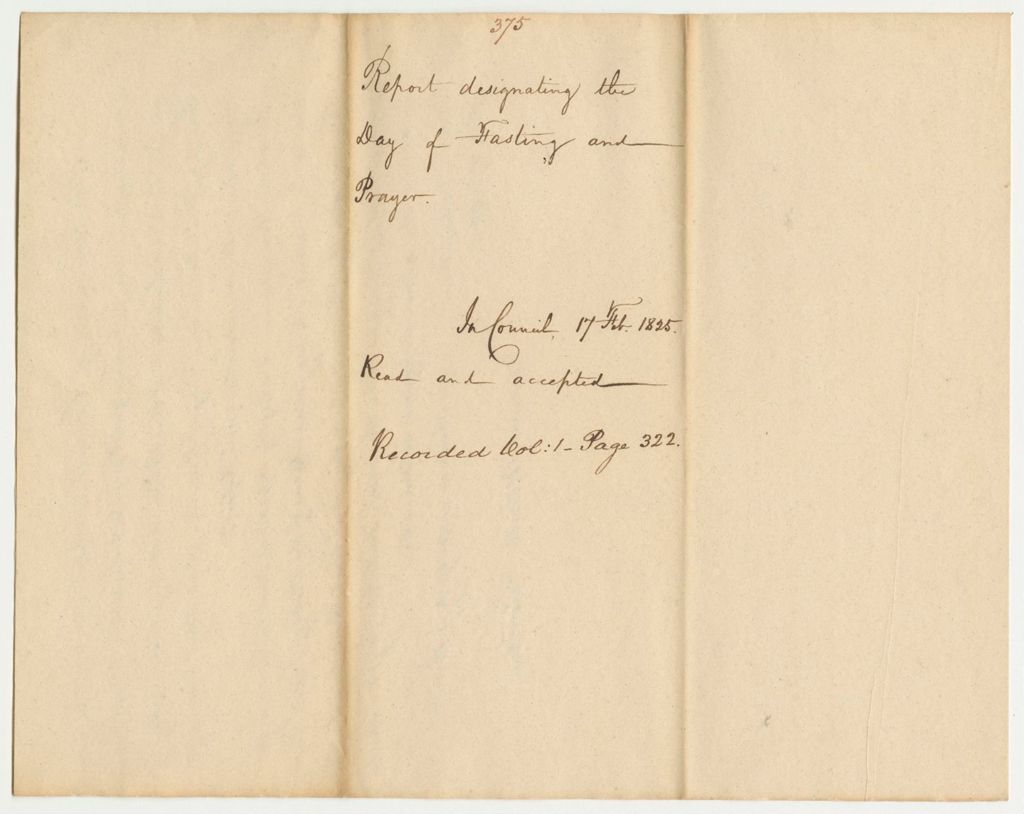 375
Report designating the
Day of Fasting and
Prayer.
In Council, 17 Feb. 1825.
Read and accepted
Recorded Vol: 1 - Page 322.